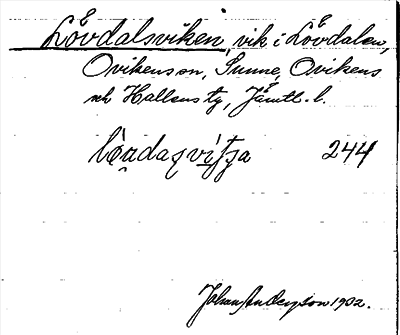 Lövdalsviken, vik i Lövdalen,
Ovikens sn, Sunne, Ovikens
och Hallens tg, Jämtl. l.
244
Johan Anderson 1902.